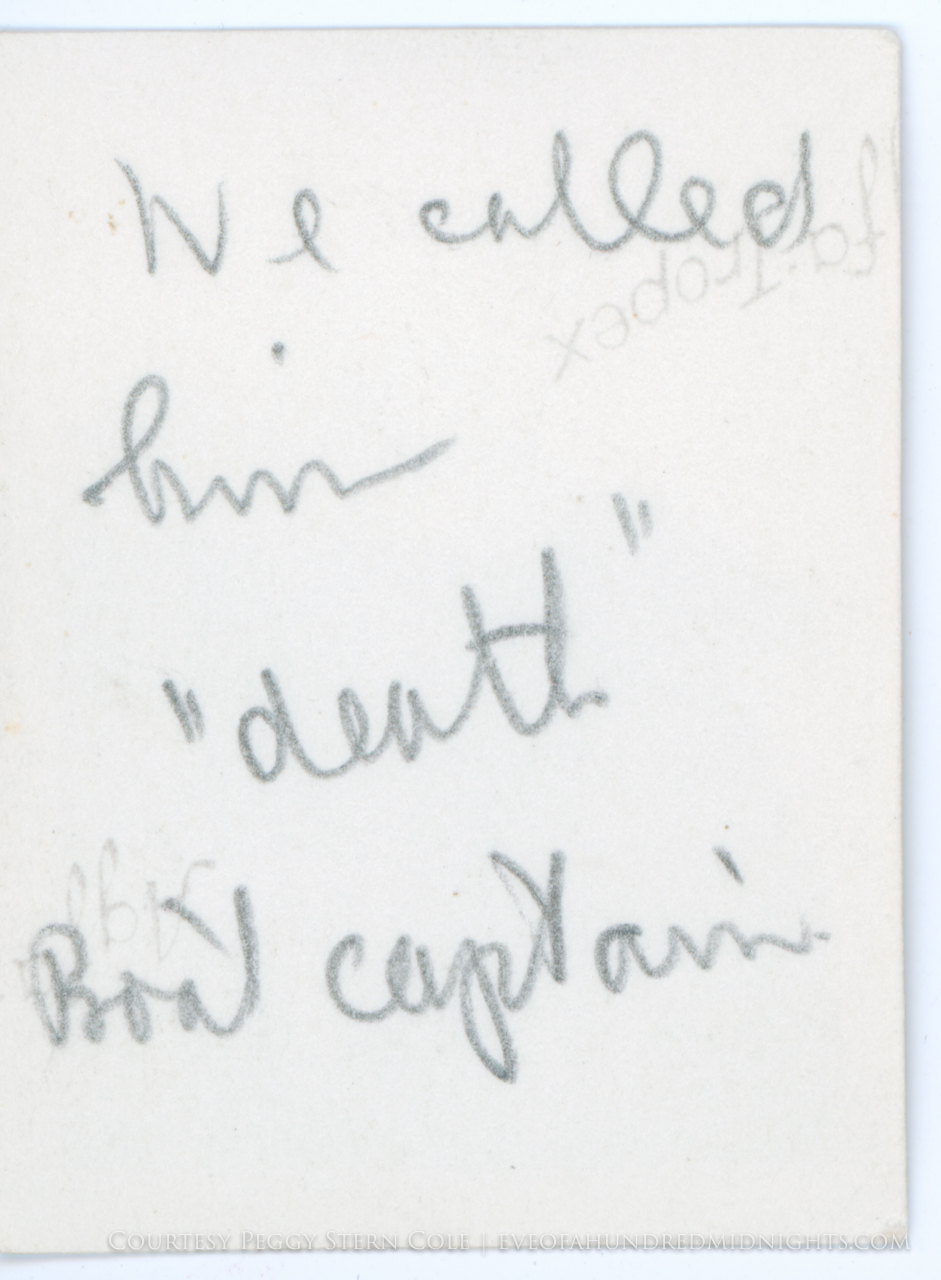 We called
him
"death"
Boat captain
Agfa-Tropex
COURTESY PEGGY STERN COLE | EVEOFAHUNDREDMIDNIGHTS.COM